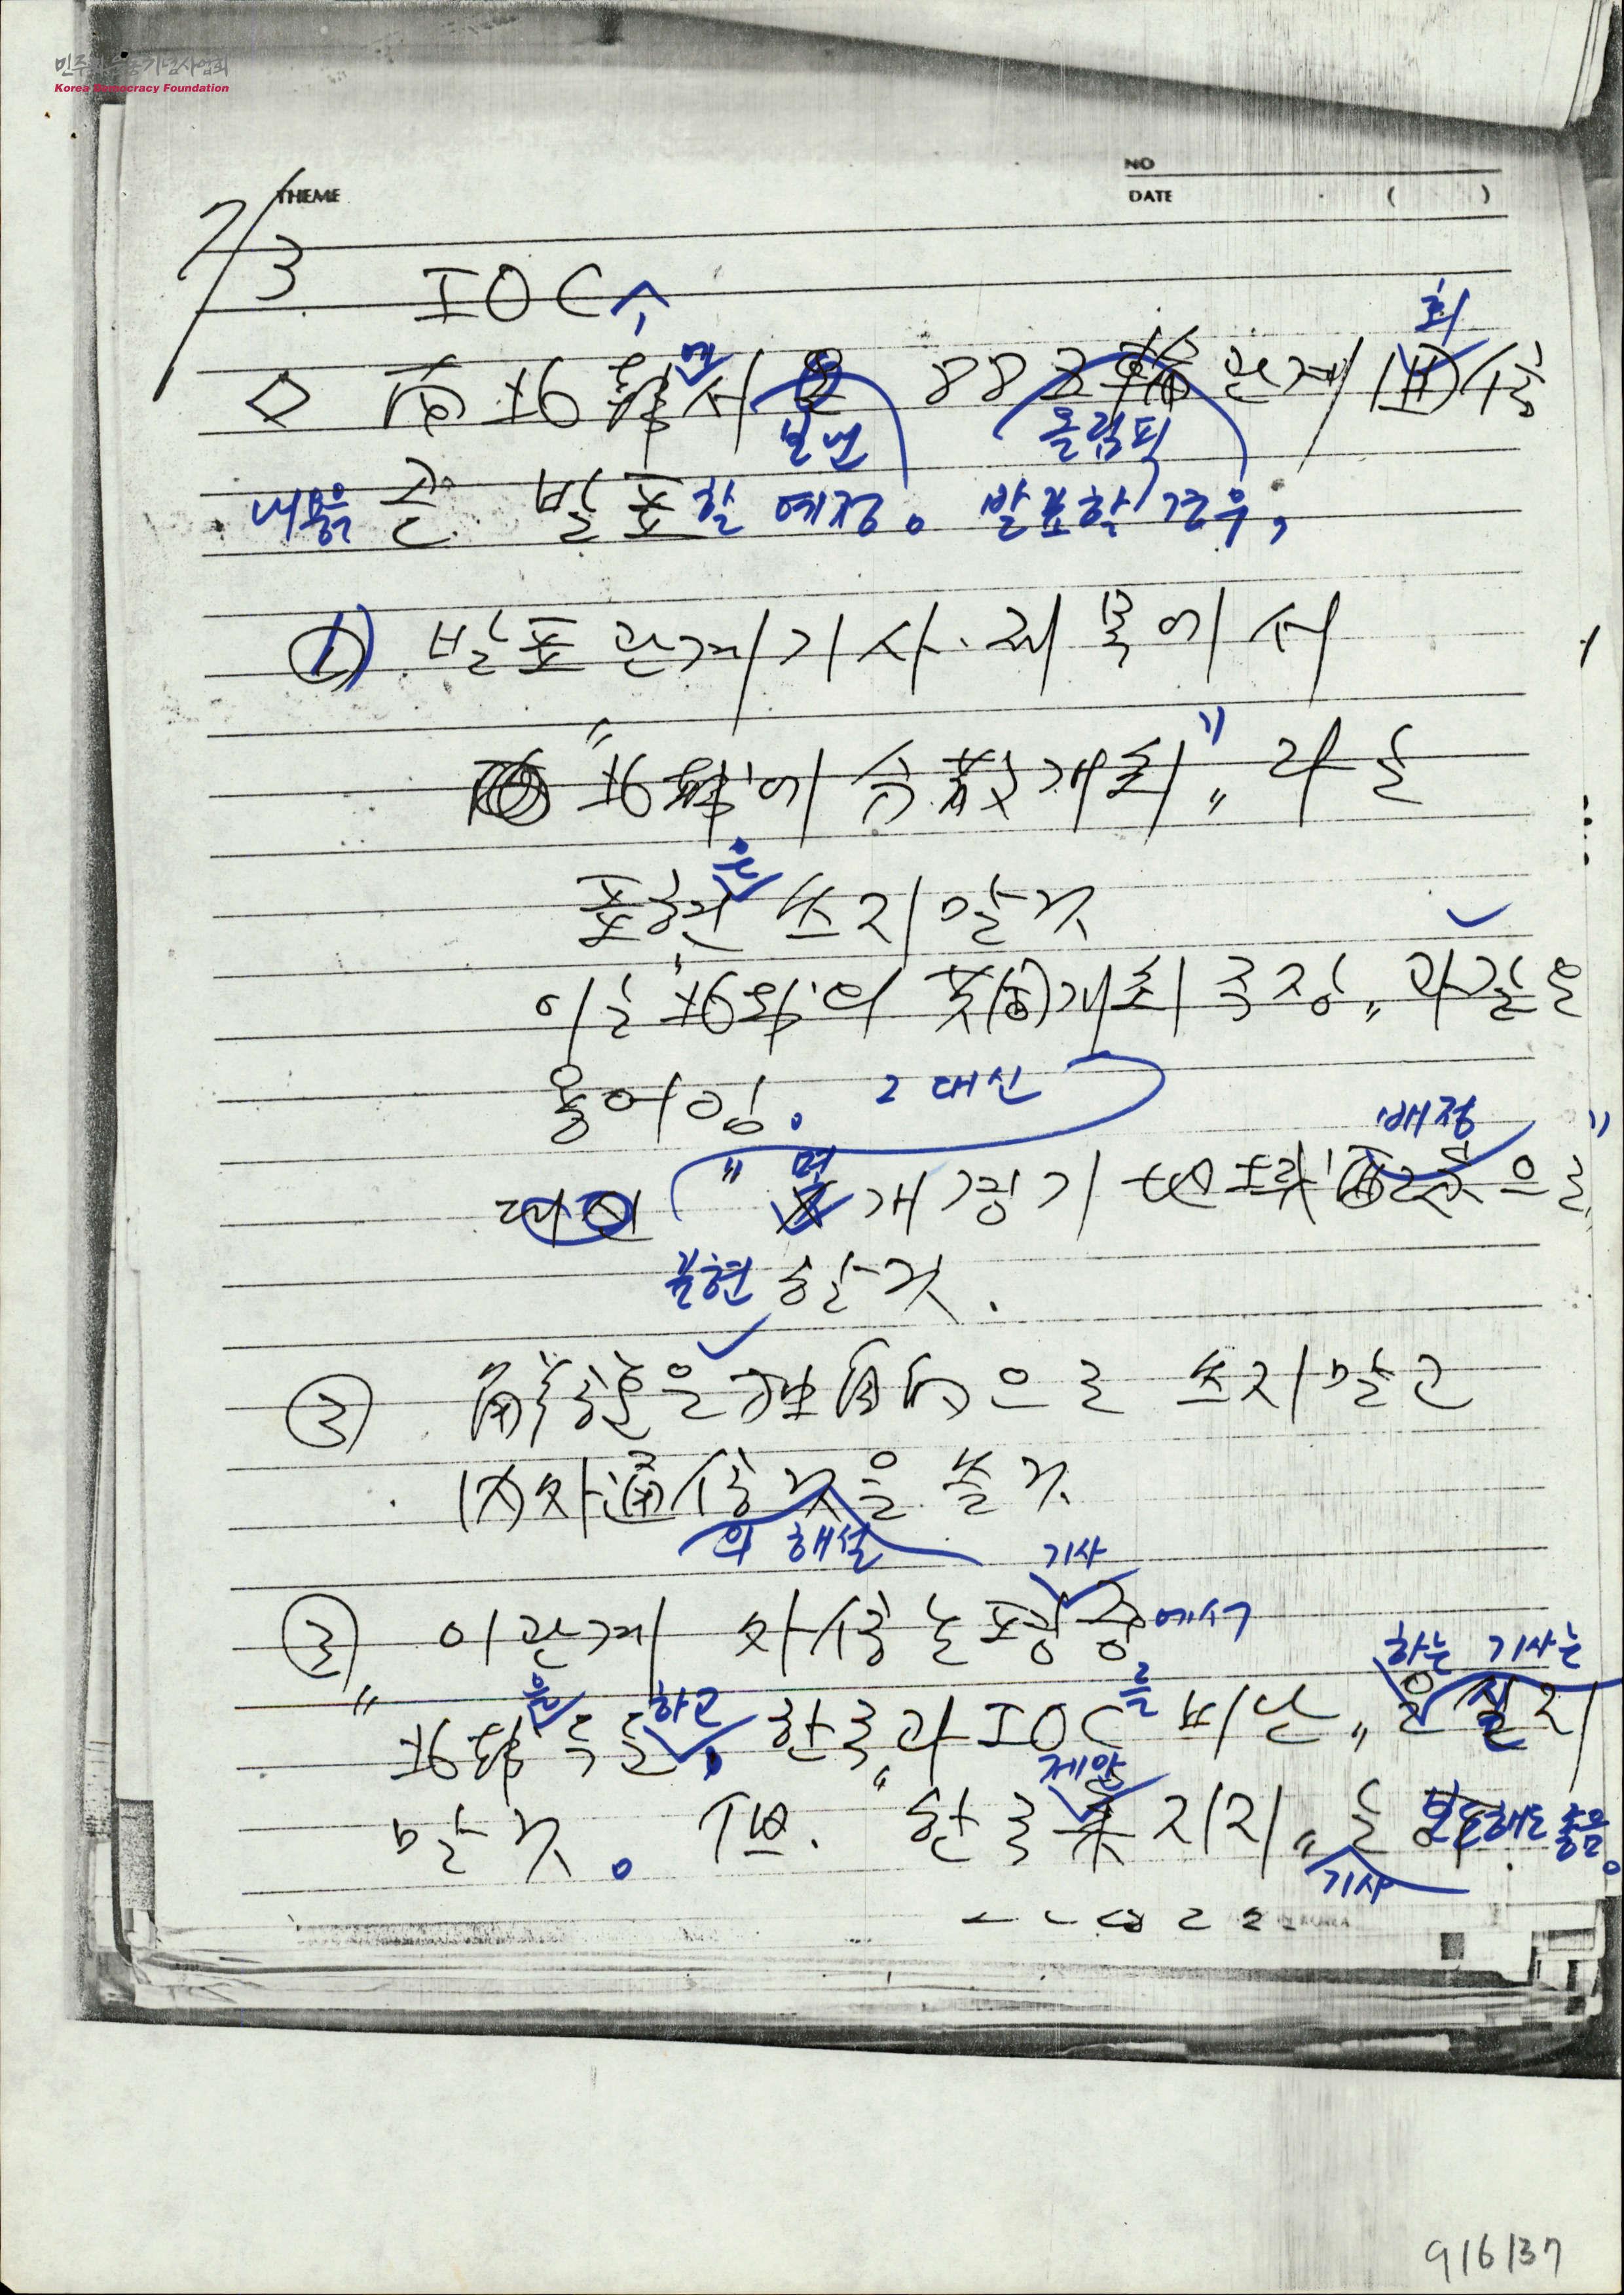 민주화운동기념사업회
Korea Democracy Foundation
NO
THEME
DATE ( )
7/3
IOC
회
◇ 南北韓에서 88 관계 回信
보낸 올림픽
내용 곧 발표할 예정. 발표할 경우,
1) 발표 관계기사·제목에서
“北韓에 分散개최” 라는
표현은 쓰지말것
이는 北韓의 共同개최 주장„ 과 같은
용어임. 그 대신
배정
대신 “몇 개 경기 으로”
표현 할것.
② 解說을 으로 쓰지말고
內外通信 것을 쓸것
의 해설
기사
③ 이 관계 外信논평중에서
하는 기사는
을 하고 를
“北韓 두둔, 한국과 IOC 비난„ 을 싣지
제안
말것. 但. “한국案 지지„ 는 보도해도 좋음.
기사
KOREA
916137